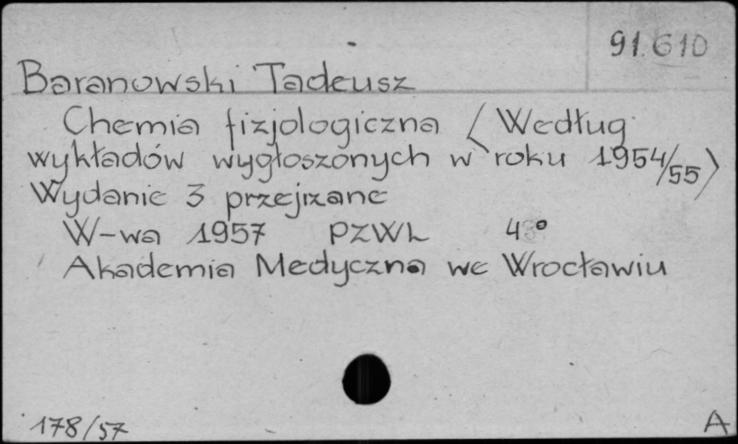 91.610
Baranowski Tadeusz
Chemia fizjologiczna (Według
wykładów wygłoszonych w roku 1954/55)
Wydanie 3 przejrzane
W-wa 1957 PZWL 4°
Akademia Medyczna we Wrocławiu
178/57
A